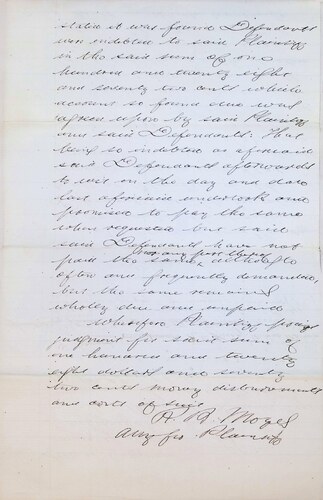 stated it was found Defendants
were indebted to said Plaintiff
in the said sum of one
hundred and twenty eight
and seventy two cents which
account so found due was
agreed upon by said Plaintiff
and said Defendants. That
being so indebted as aforesaid
said Defendants afterwards
to wit on the day and date
last aforesaid undertook and
promised to pay the same
when requested but said
said Defendants have not
nor any part thereof
paid the same, although
often and frequently demanded,
but the same remains
wholly due and unpaid
Wherefore Plaintiff prays
judgment for said sum of
one hundred and twenty
eight dollars and seventy
two cents money disbursements
and costs of suit
Moyes
Atty for Plaintiffs